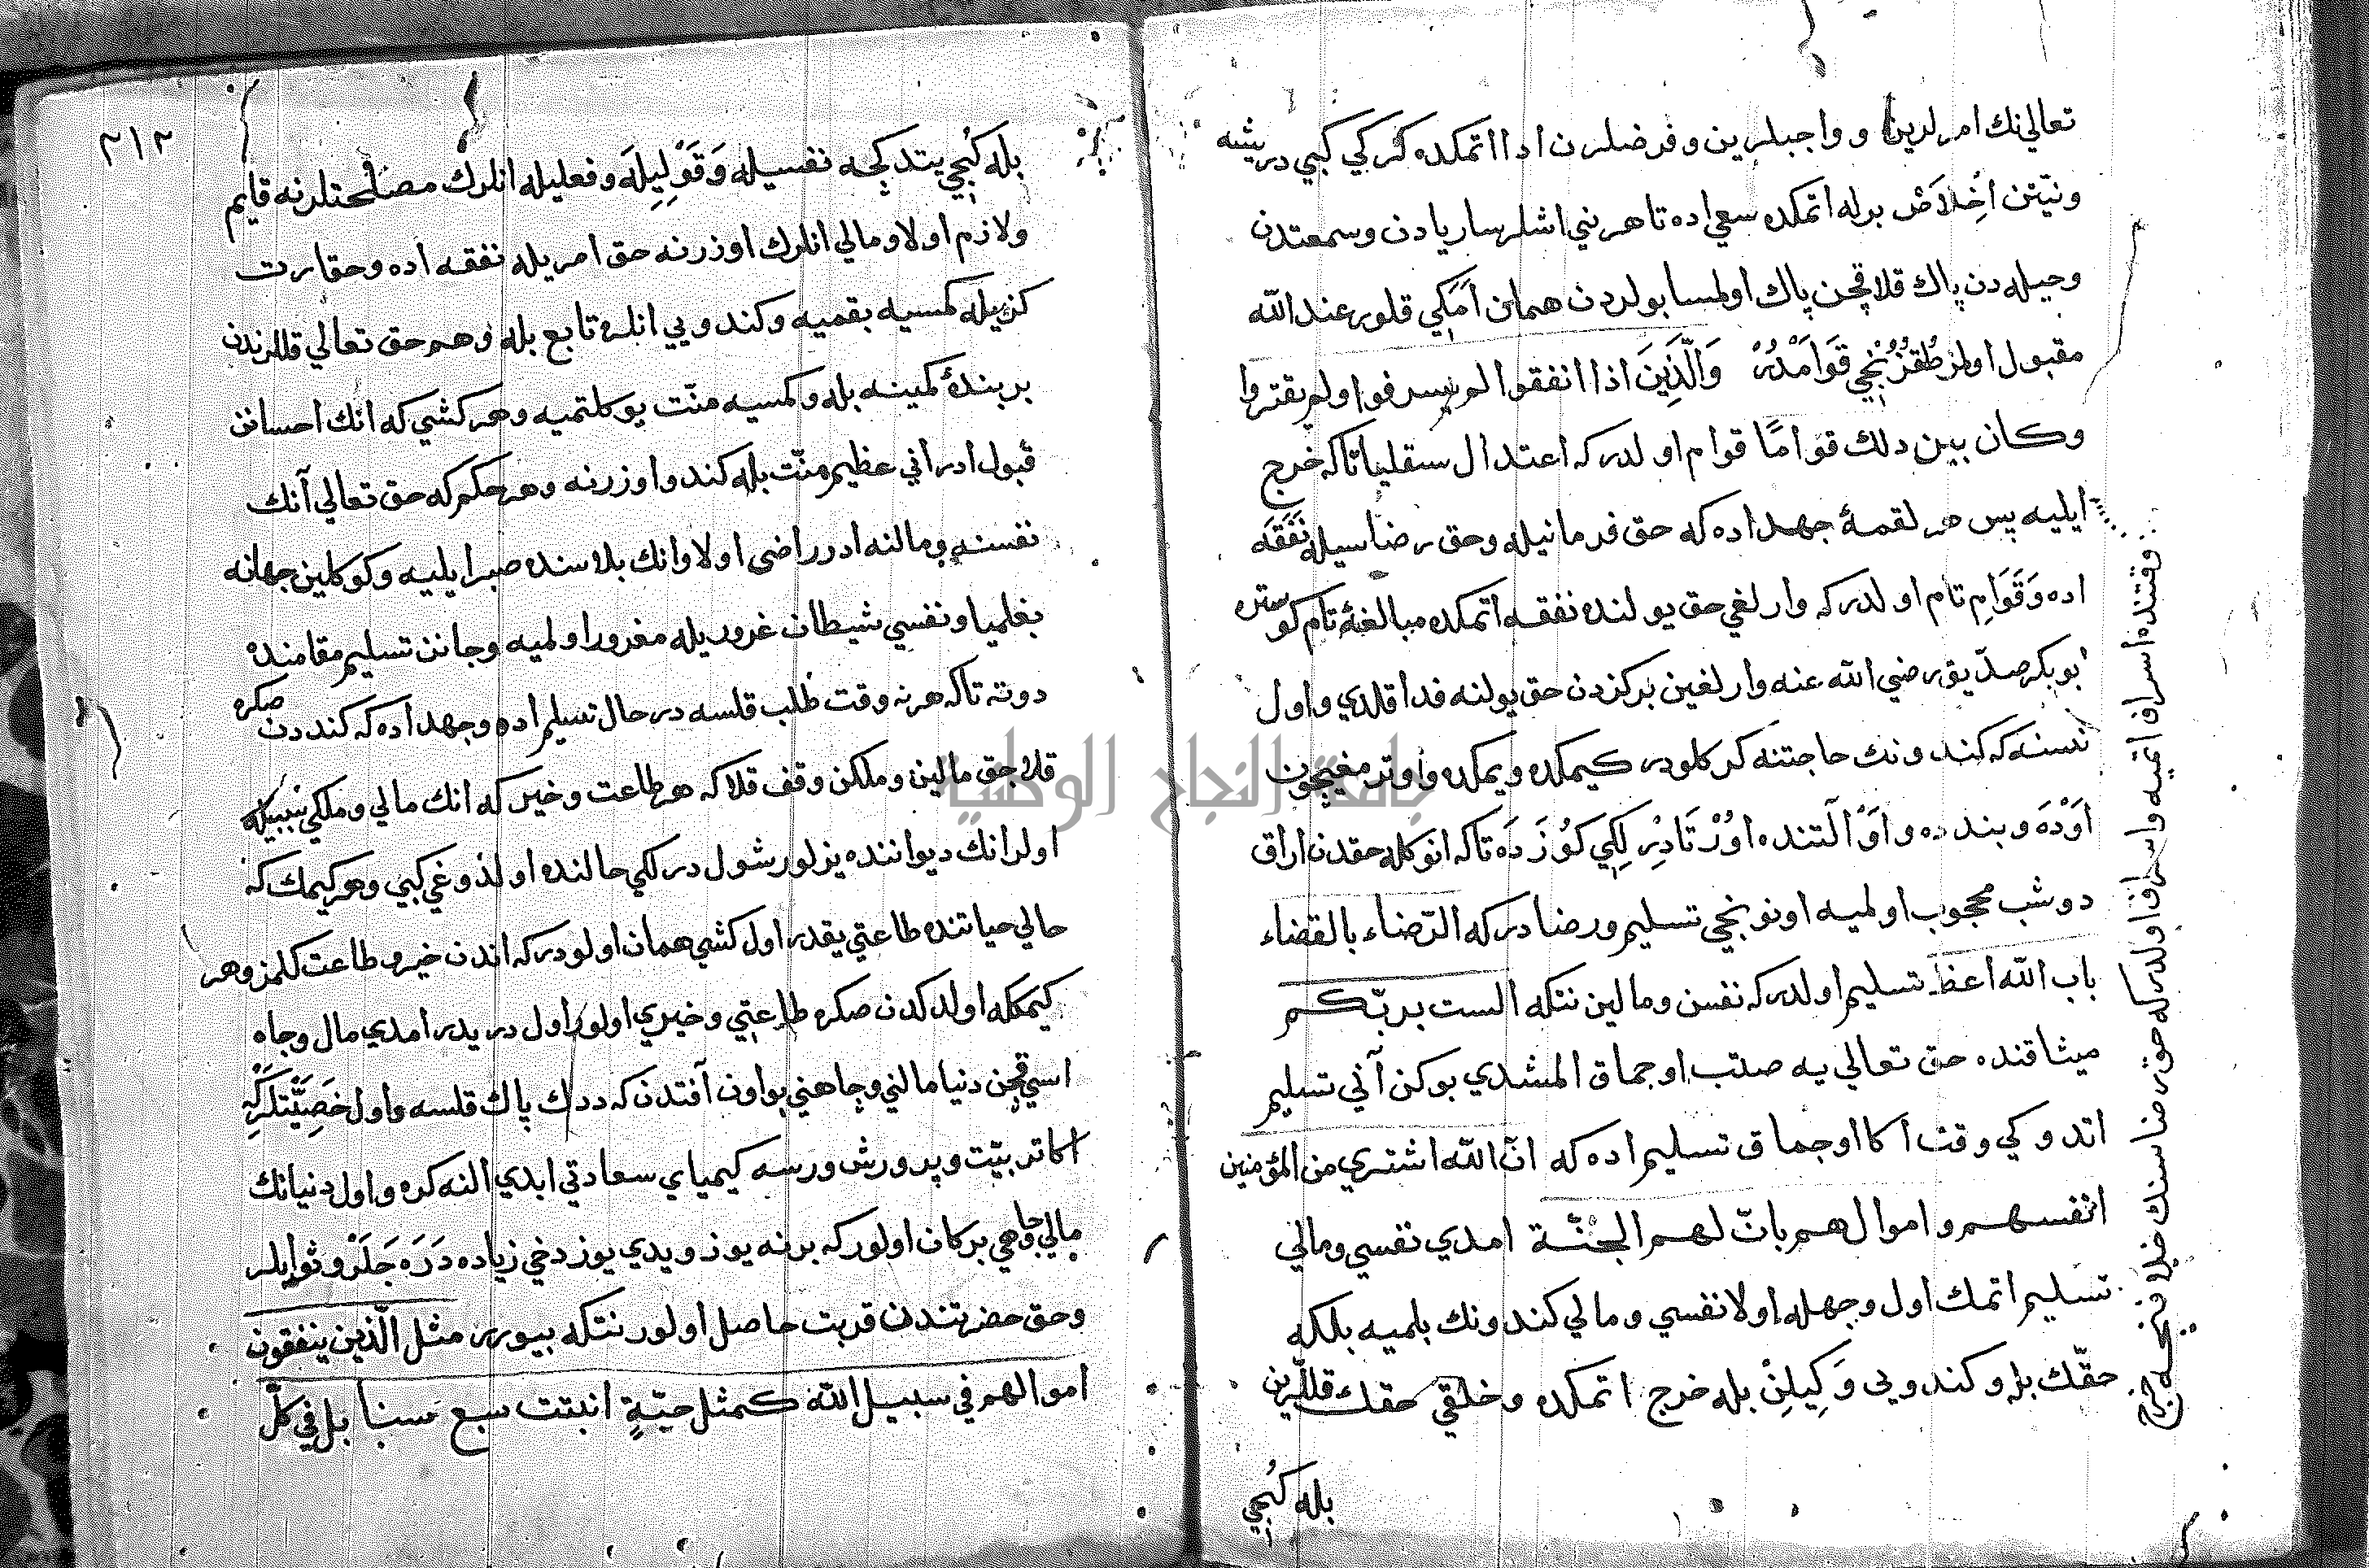 تعالي نك امرلرين و واجبلرين وفرضلرن ادا اتمكده كركي كبي دريشه
ونيّتن اخلاص برله اتمكده سعي اده تا هر نني اشلرسا ريادن وسمعتدن
وحيله دن پاك قلا قچن پاك اولمسا بولردن همان امكي قلور عند الله
مقبول اولمز طقزنجي قوامدر والّذين اذا انفقوا لم يسرفوا ولم يقتروا
وكان بين ذلك قواما قوام اولدر كه اعتدال سقليا تاكه خرج
ايليه پس هر لقمهٔ جهد اده كه حق فرمانيله وحق رضاسيله نفقه
اده وقوام تام اولدر كه وارلغي حق يولنده نفقه اتمكده مبالغهٔ تام كوستره
ابو بكر صدّيق رضي الله عنه وارلغين بركزدن حق يولنه فدا قلدي واول
نسنه كه كندونك حاجتنه كركلودر كيمكده ويمكده واوترمغيچون
اوده وبنده ده واو التنده اورتا درلكي كوزده تاكه انوكله حقدن اراق
دوشب محجوب اولميه اونونجي تسليم ورضادر كه الرّضاء بالقضاء
باب الله اعظ تسليم اولدر كه نفسن ومالين نتكه الست بربّكم
ميثاقنده حق تعالي يه صتب اوجماق المشدي بوكن آني تسليم
اتدوكي وقت اكا اوجماق تسليم اده كه انّ الله اشتري من المؤمنين
انفسهم واموالهم بانّ لهم الجنّة امدي نفسي ومالي
تسليم اتمك اول وجهله اولا نفسي ومالي كندونك بلميه بلكه
حقّك بله وكندويي وكيلن بله خرج اتمكده وخلقي حقك قللّرين
بله كبجي
وقتنده اسراف اتميه واسراف اولدر كه حق رضاسنك خلافنجه خرج
٢١٢
بله كبجي يتدكجه نفسيله وقوليله وفعليله انلرك مصلحتلرنه قايم
ولازم اولا ومالي انلرك اوزرنه حق امريله نفقه اده وحقارت
كزيله كمسيه بقميه وكندويي انلره تابع بله وهم حق تعالي قللرندن
بر بندهٔ كمينه بله وكمسيه منّت يوكلتميه وهر كشي كه انك احسانن
قبول ادر اني عظيم منّت بله كندو اوزرنه وهر حكم كه حق تعالي آنك
نفسنه ومالنه ادر راضى اولا وانك بلاسنده صبر ايليه وكوكلين جهانه
بغلميا ونفسي شيطان غروريله مغرور اولميه وجانن تسليم مقامنده
دوته تاكه هر نه وقت طلب قلسه درحال تسليم اده وجهد اده كه كنددن صكره
قلاجق مالين وملكن وقف قلا كه هر طاعت وخير كه انك مالي وملكي سببيله
اولر انك ديواننده يزلور شول درلكي حالنده اولدوغي كبي وهر كيمك كه
حالي حياتنده طاعتي يقدر اول كشي همان اولودر كه اندن خير وطاعت كلمز وهر
كيمكله اولدكدن صكره طاعتي وخيري اولور اول دريدر امدي مال وجاه
اسي قچن دنيا مالني وجاهني بو اون آفتدن كه ددك پاك قلسه واول خصيّتلركه
اكا تربيّت وپرورش ورسه كيمياي سعادتي ابدي النه كره واول دنيانك
مالي وجاهي بركان اولور كه برنه يوز ويدي يوز دخي زياده درجه لر وثوابلر
وحق حضرتندن قربت حاصل اولور نتكه بيورر مثل الّذين ينفقون
اموالهم في سبيل الله كمثل حبّة انبتت سبع سنابل في كلّ
جامعة النجاح الوطنية